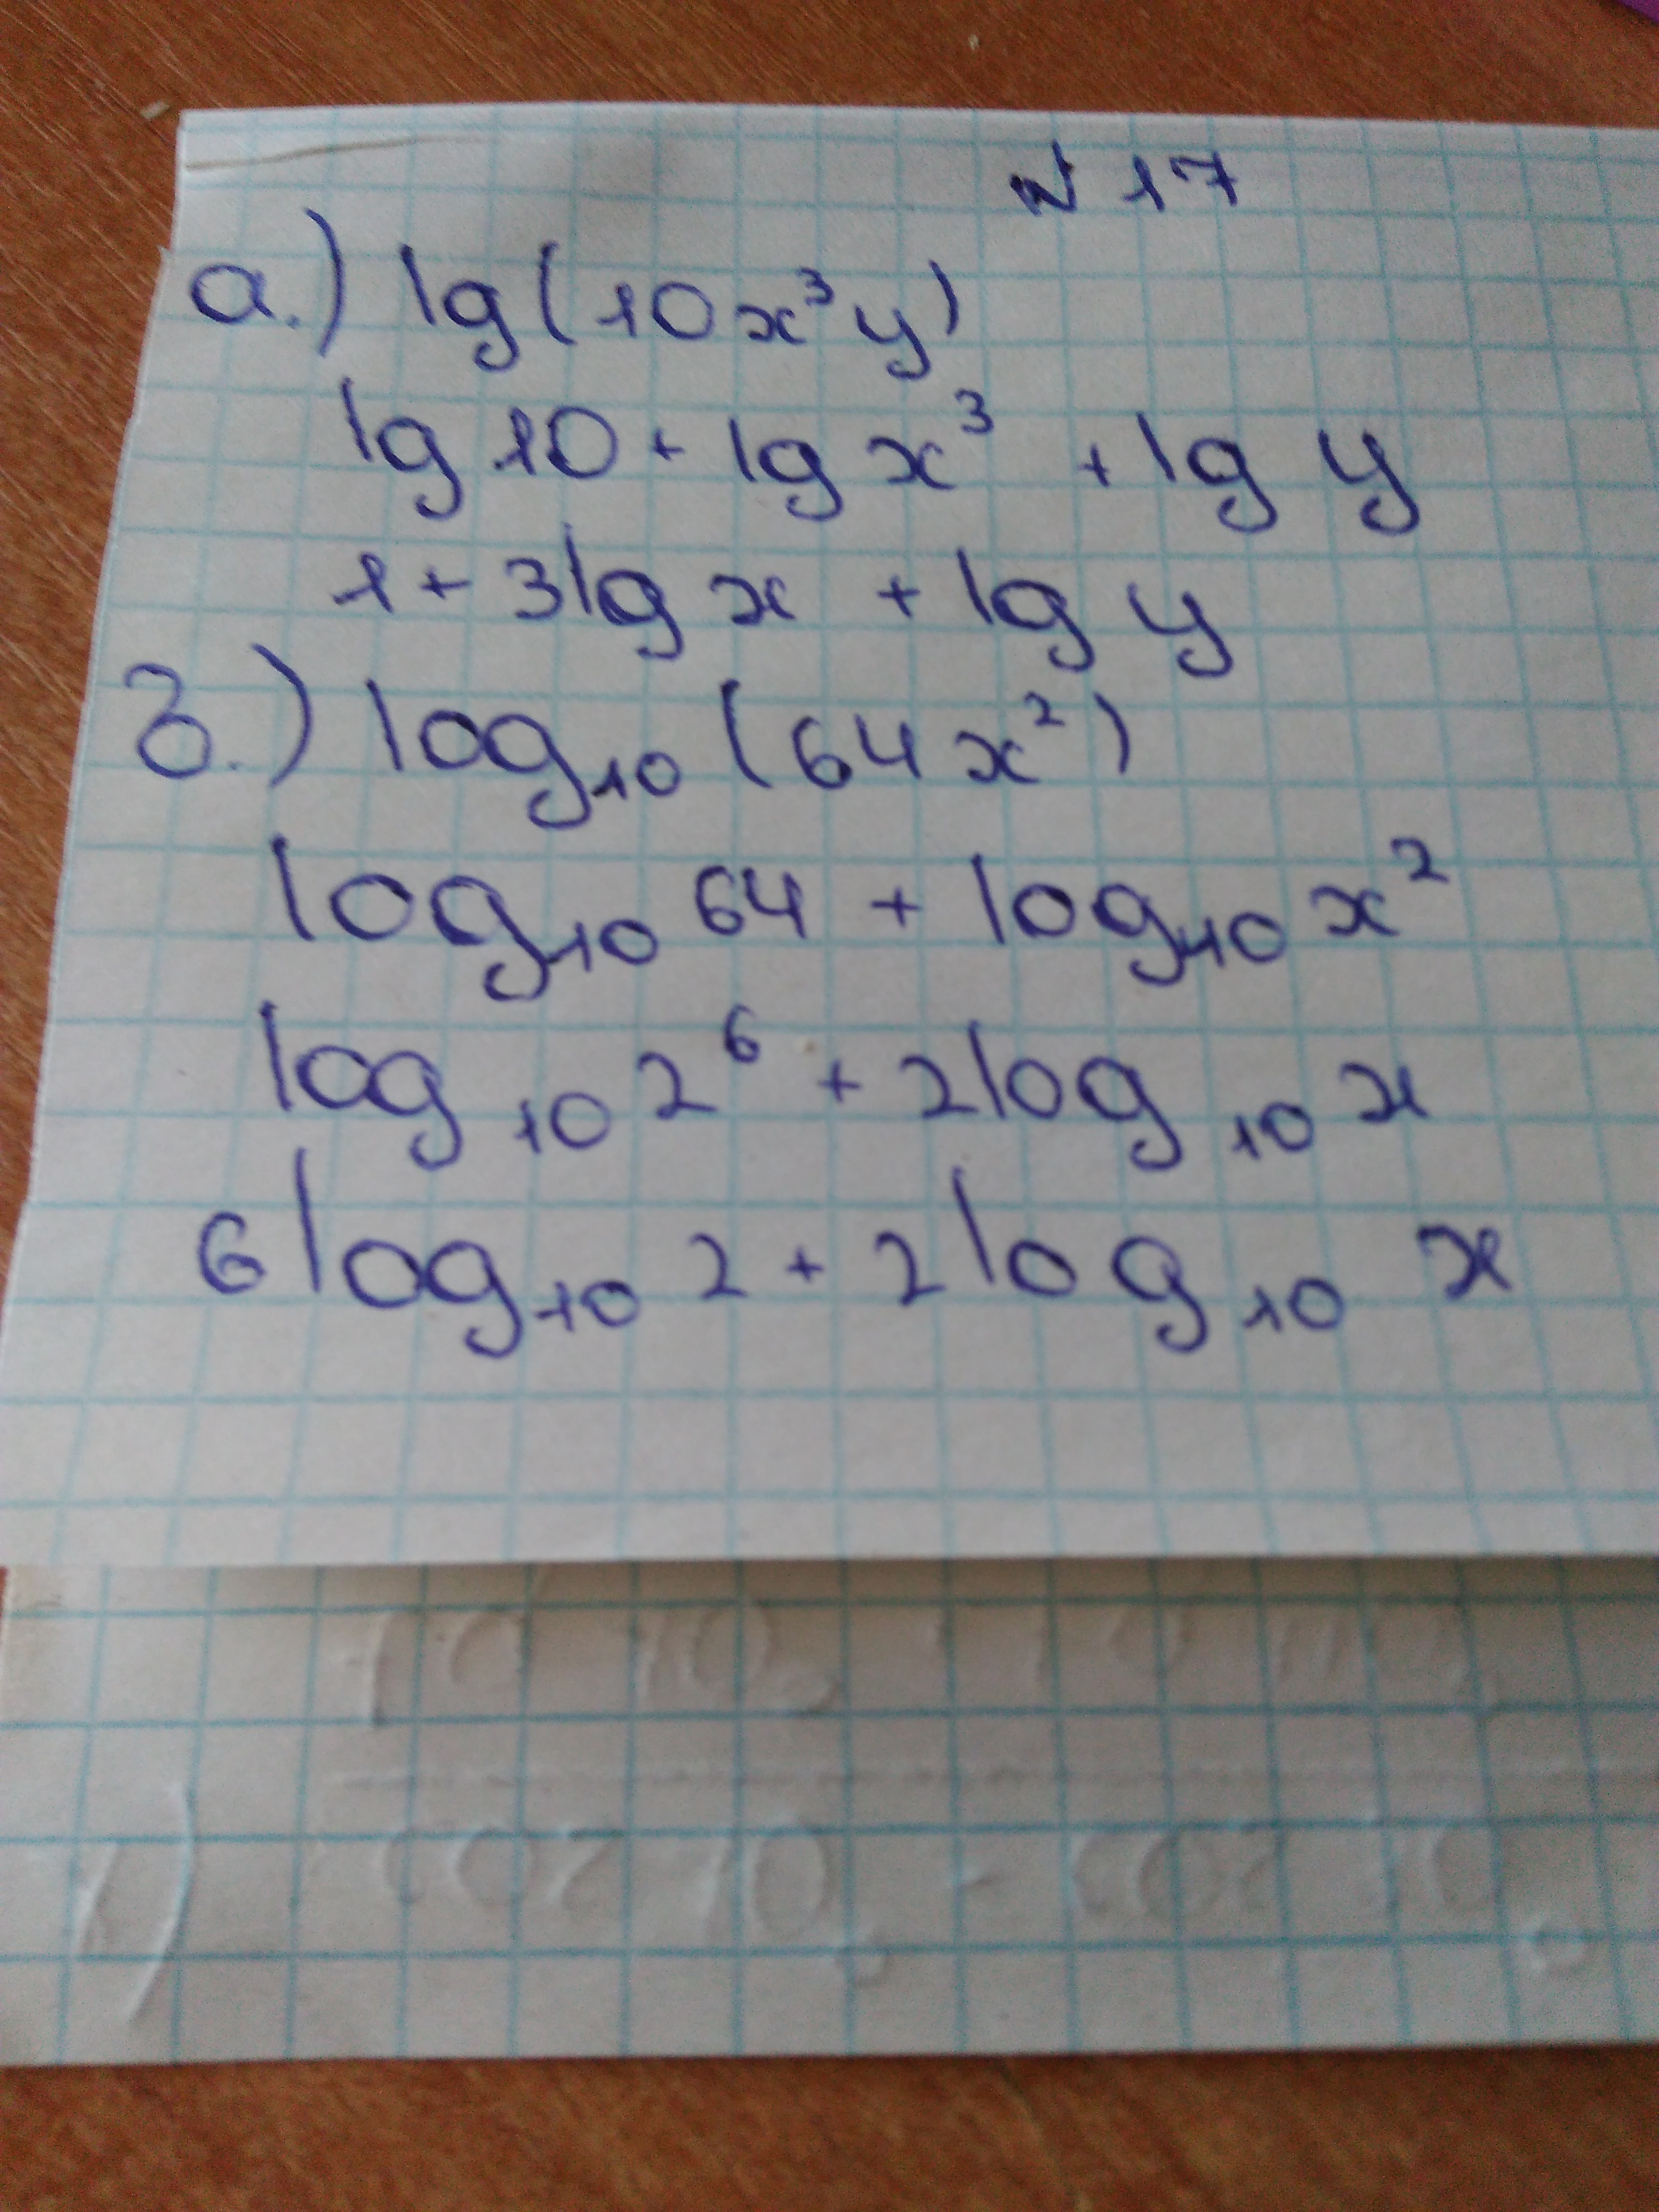 N 17
а.) lg(10x³y)
lg 10 + lg x³ + lg y
1 + 3lg x + lg y
з.) log₁₀(64x²)
log₁₀ 64 + log₁₀ x²
log₁₀ 2⁶ + 2log₁₀ x
6log₁₀ 2 + 2log₁₀ x